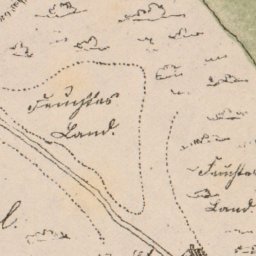 Feuchtes
Land.
Feuchtes
Land.
l.